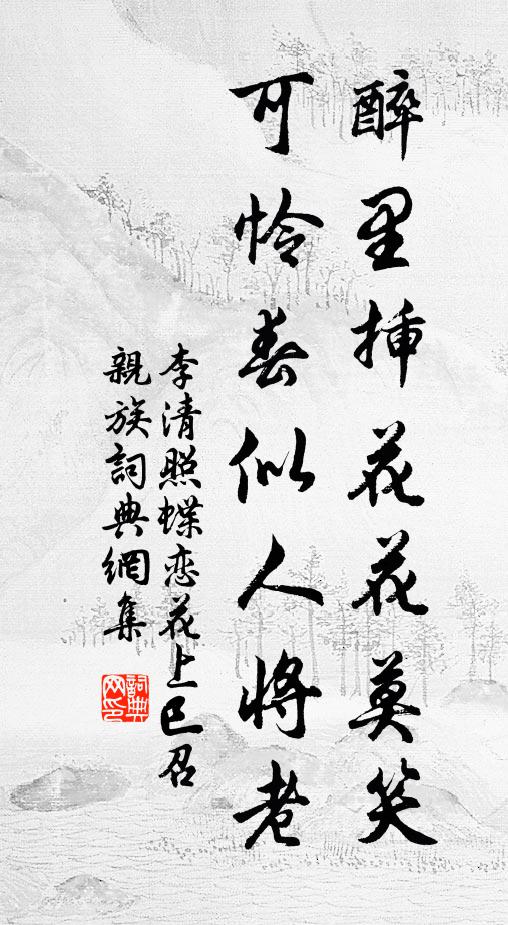 醉里插花花莫笑
可怜春似人将老
李清照蝶恋花上巳召
親族詞典網集
詞典
网印